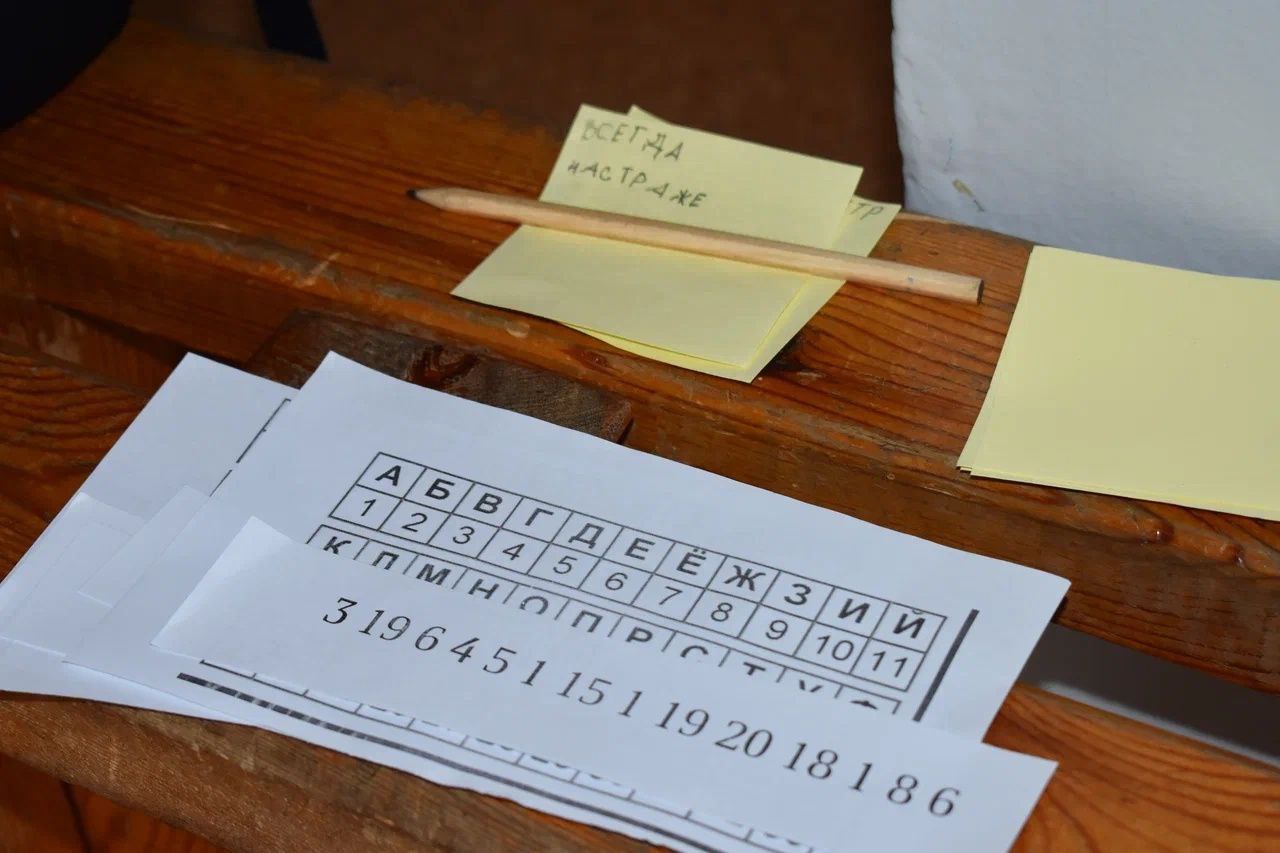 ВСЕГДА
НАСТРАЖЕ
ТР
А Б В Г Д Е Ё Ж З И Й
1 2 3 4 5 6 7 8 9 10 11
К Л М Н О П Р С Т У Ф
3 19 6 4 5 1 15 1 19 20 18 1 8 6